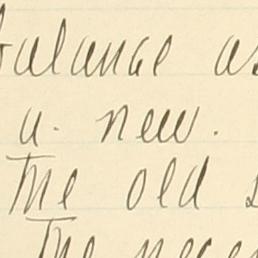 balance as
a. new.
The old
The